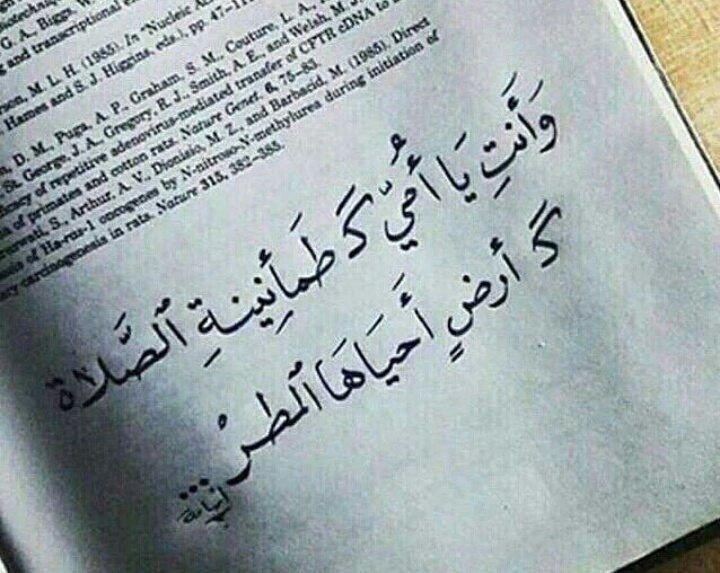 G. A., Biggs, W
and transcriptional e
son, M. L. H. (1985). In "Nucleic A
Hames and S. J. Higgins, eds.), pp. 47–11
D. M., Puga, A. P., Graham, S. M., Couture, L. A.,
St. George, J. A., Gregory, R. J., Smith, A. E., and Welsh, M. J
ency of repetitive adenovirus-mediated transfer of CFTR cDNA to
of primates and cotton rats. Nature Genet. 6, 75–83.
S., Arthur, A. V., Dionisio, M. Z., and Barbacid, M. (1985). Direct
of Ha-ras-1 oncogenes by N-nitroso-N-methylurea during initiation of
carcinogenesis in rats. Nature 315, 382–385.
وَأَنتِ يَا أُمّي كَ طمَأنِينةِ ٱلصَّلاة
كَ أرضٍ أَحيَاهَا ٱلمطرُ...